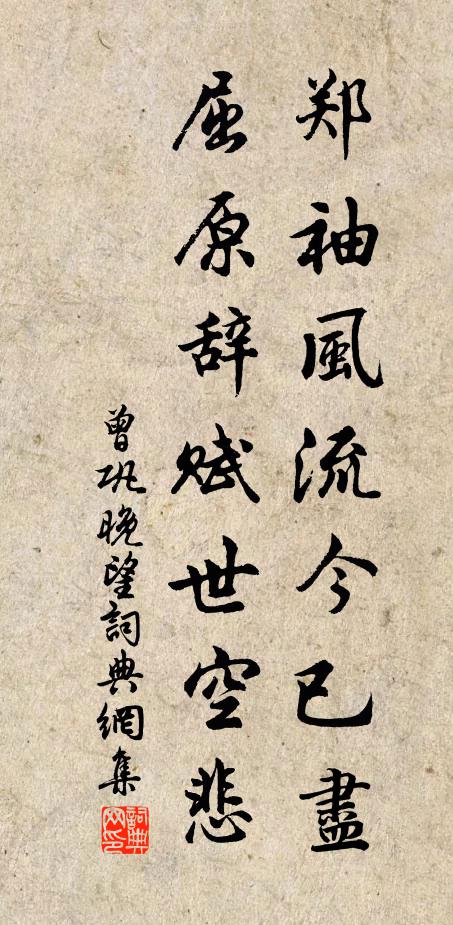 郑袖風流今已盡
屈原辞赋世空悲
曾巩晚望詞典網集
詞典网印